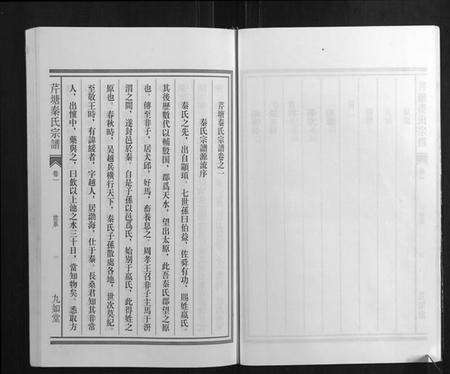 芹塘秦氏宗譜卷之一
秦氏宗譜源流序
秦氏之先，出自顓頊，七世孫曰伯益，佐舜有功，賜姓嬴氏。
其後歷數代以輔殷國，郡爲天水，望出太原，此吾秦氏郡望之原
也。傳至非子，居犬邱，好馬，畜養息之，周孝王召非子主馬于汧
渭之間，遂封邑於秦，自是子孫以邑爲氏，始別于嬴氏，此得姓之
原也。春秋時，吴越兵横行天下，秦氏子孫散處各地，世次莫紀
至敬王時，有諱緩者，字越人，居渤海，仕于秦。長桑君知其非常
人，出懷中，藥與之，曰飲以上池之水三十日，當知物矣，悉取方
芹塘秦氏宗譜
卷一
九如堂